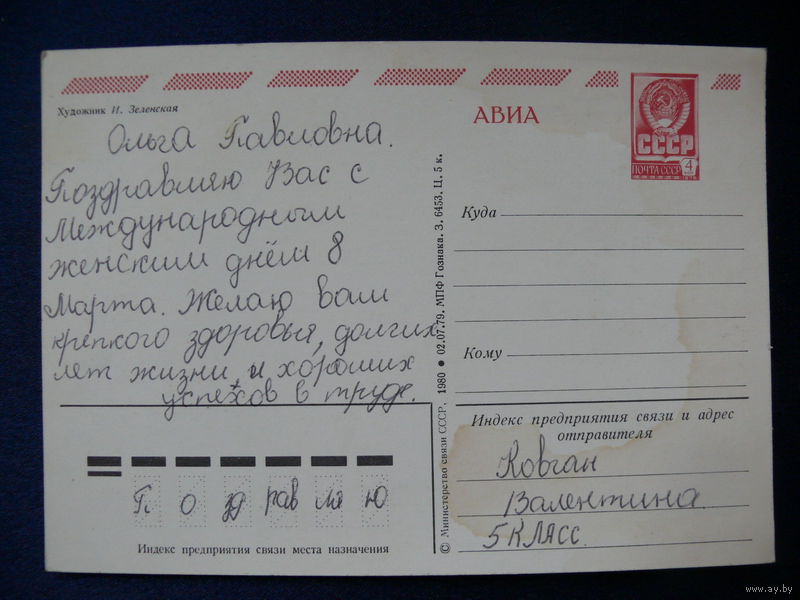 Художник И. Зеленская
Ольга Павловна.
Поздравляю Вас с
Международным
женским днём 8
Марта. Желаю вам
крепкого здоровья, долгих
лет жизни и хороших
успехов в труде.
П о зд рав ля ю
Индекс предприятия связи места назначения
© Министерство связи СССР. 1980 ● 02.07.79. МПФ Гознака. З. 6453. Ц. 5 к.
АВИА
СССР
ПОЧТА СССР 4
Куда
Кому
Индекс предприятия связи и адрес
отправителя
Ковган
Валентина
5 КЛАСС.
www.ay.by